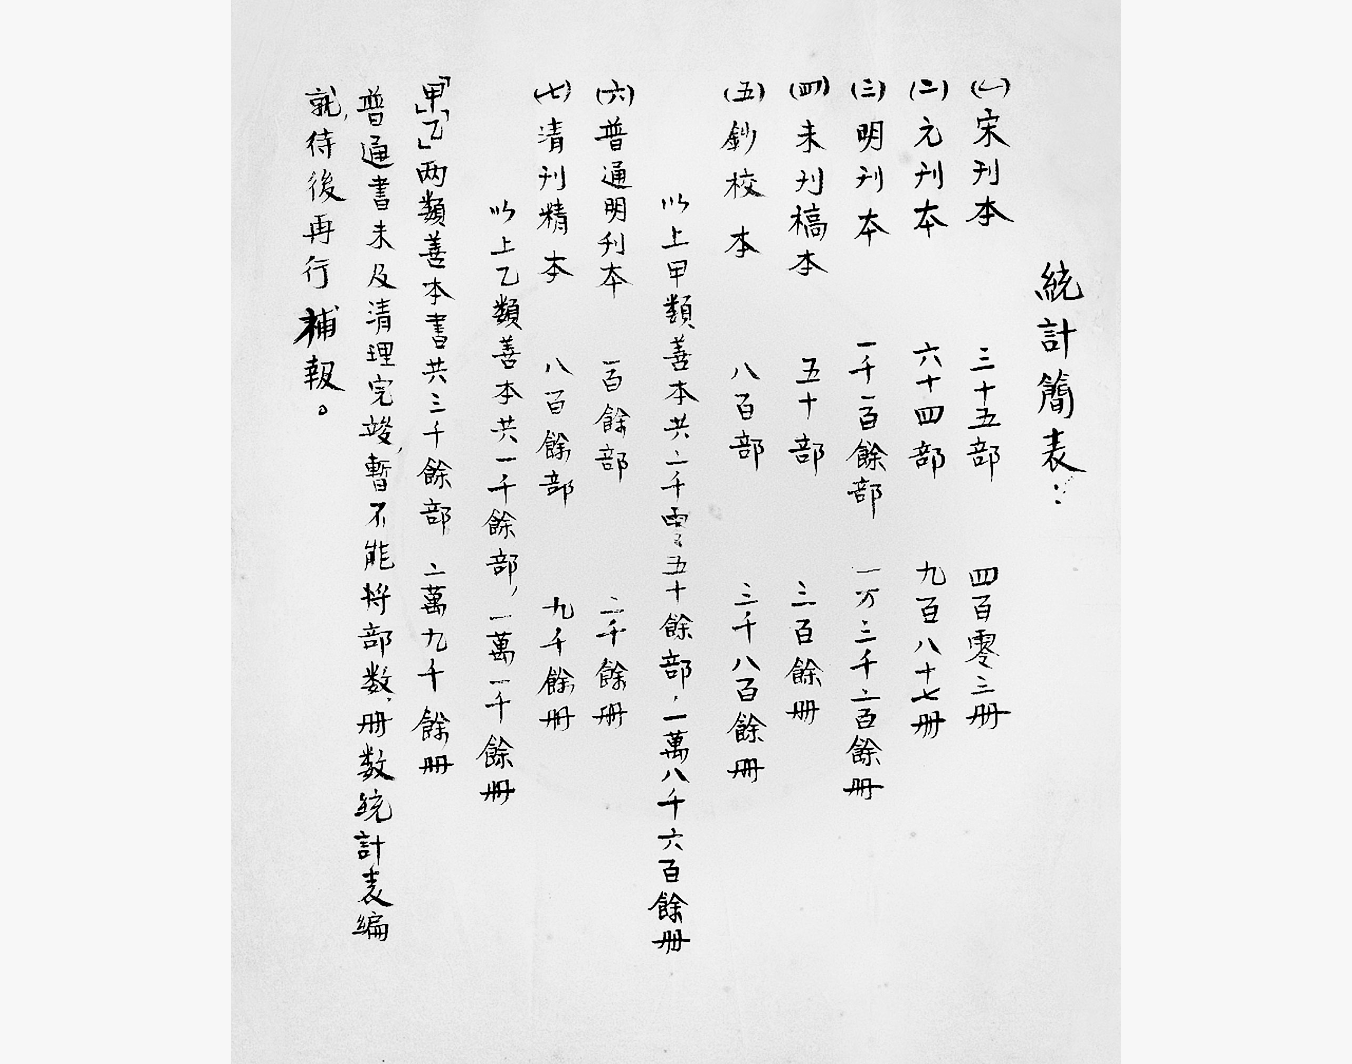 統計簡表：
(一)宋刊本 三十五部 四百零三册
(二)元刊本 六十四部 九百八十七册
(三)明刊本 一千一百餘部 一万三千二百餘册
(四)未刊稿本 五十部 三百餘册
(五)鈔校本 八百部 三千八百餘册
以上甲類善本共二千零五十餘部，一萬八千六百餘册
(六)普通明刊本 一百餘部 二千餘册
(七)清刊精本 八百餘部 九千餘册
以上乙類善本共一千餘部，一萬一千餘册
「甲」「乙」两類善本書共三千餘部 二萬九千餘册
普通書未及清理完竣，暫不能将部数、册数統計表編
就，待後再行補報。